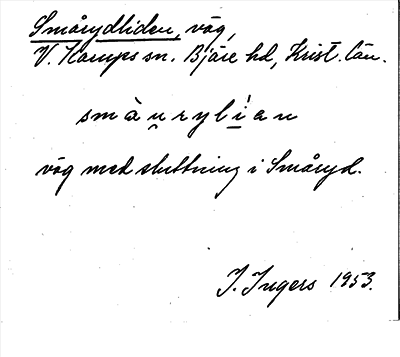 Smårydliden, väg,
V. Karups sn. Bjäre hd, Krist. län.
småu̯rylian
väg med sluttning i Småryd.
I. Ingers 1953.